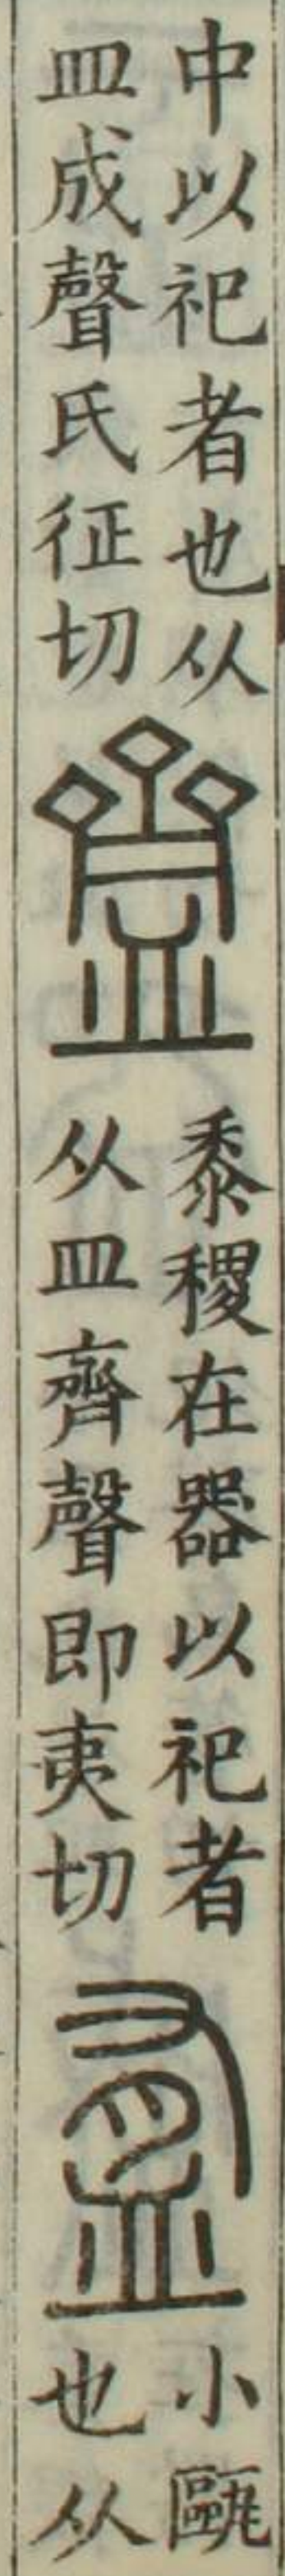 中以祀者也从
皿成聲氏征切
𪗉
黍稷在器以祀者
从皿齊聲即夷切
㿽
小甌
也从